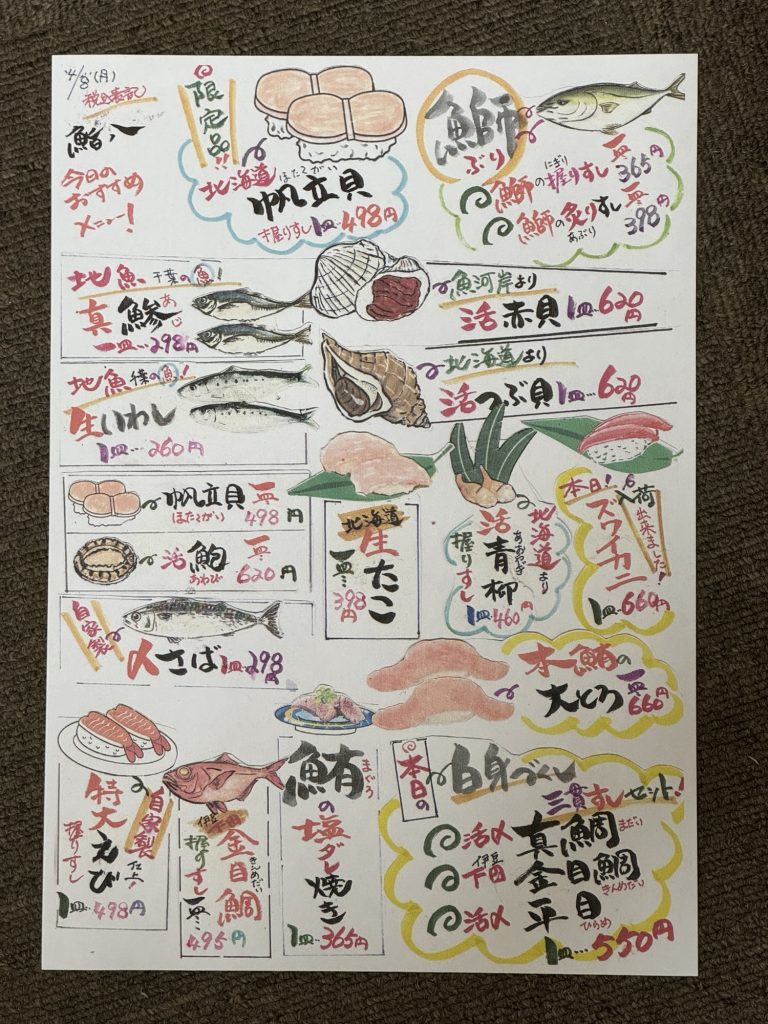 4/8(月)
税込表記
鮨八
今日の
おすすめ
メニュー!
限定品!!
北海道
ほたてがい
帆立貝
握りすし1皿…498円
鰤
ぶり
鰤の握りすし 一皿 365円
にぎり
鰤の炙りすし 一皿 398円
あぶり
地魚 千葉の魚!
真鯵 あじ
一皿…298円
魚河岸より
活赤貝 1皿…620円
北海道より
活つぶ貝 1皿…620円
地魚 千葉の魚!
生いわし
1皿…260円
帆立貝 一皿 498円
ほたてがい
活鮑 一皿 620円
あわび
北海道
生たこ
一皿…398円
北海道より
活青柳
あおやぎ
握りすし
1皿…460円
本日!
入荷出来ました!
ズワイカニ
1皿…660円
自家製
〆さば 1皿…298円
本鮪の
大とろ 一皿 660円
自家製
仕上!
特大えび
握りすし
1皿…498円
伊豆
下田
金目鯛
きんめだい
握りすし一皿…
495円
鮪の塩ダレ焼き
まぐろ
1皿…365円
本日の
白身づくし
三貫すしセット!
活〆 真鯛 まだい
伊豆
下田 金目鯛 きんめだい
活〆 平目 ひらめ
1皿…550円